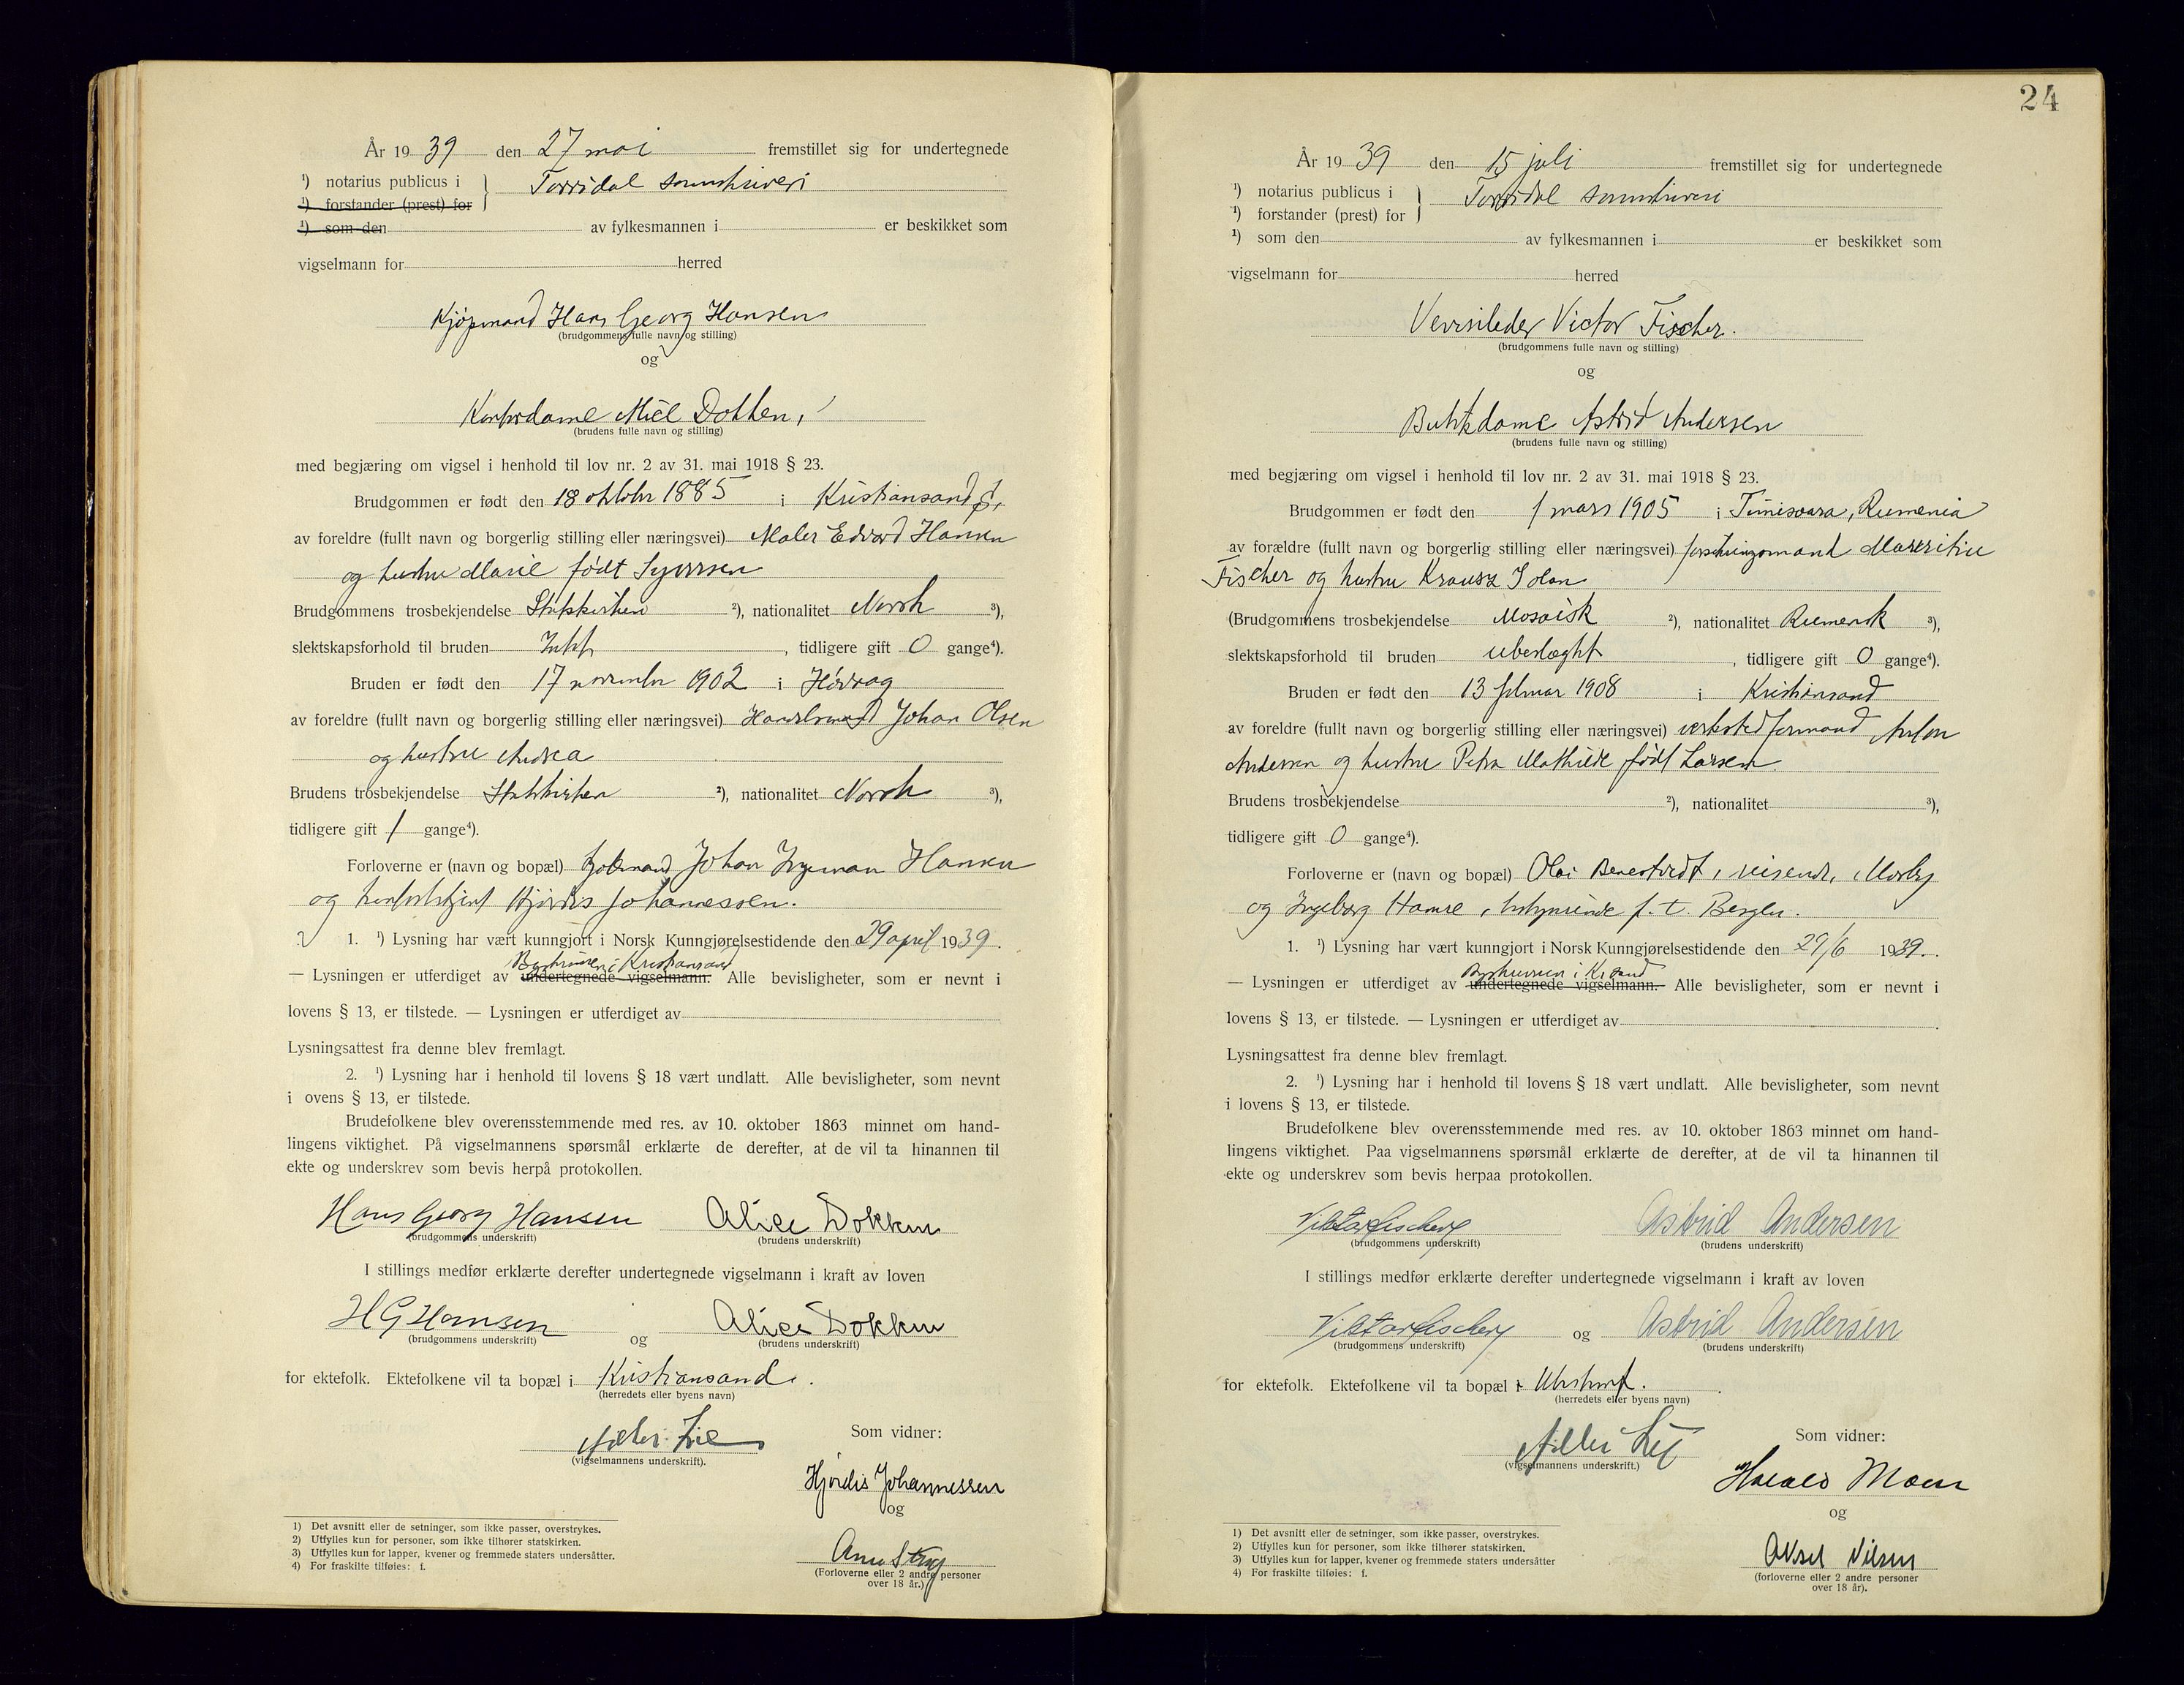 År 19 39 den 27 mai fremstillet sig for undertegnede
¹) notarius publicus i } Torridal sorenskriveri
¹) forstander (prest) for
¹) som den av fylkesmannen i er beskikket som
vigselmann for herred
Kjøpmand Hans Georg Hansen
(brudgommens fulle navn og stilling)
og
Kontordame Alice Dokken,
(brudens fulle navn og stilling)
med begjæring om vigsel i henhold til lov nr. 2 av 31. mai 1918 § 23.
Brudgommen er født den 18 oktober 1885 i Kristiansand S.
av foreldre (fullt navn og borgerlig stilling eller næringsvei) Maler Edvard Hansen
og hustru Marie født Syversen
Brudgommens trosbekjendelse Statskirken ²), nationalitet Norsk ³),
slektskapsforhold til bruden , tidligere gift 0 gange⁴).
Bruden er født den 17 november 1902 i Høvåg
av foreldre (fullt navn og borgerlig stilling eller næringsvei) Johan Olsen
og hustru Andrea
Brudens trosbekjendelse Statskirken ²), nationalitet Norsk ³),
tidligere gift 1 gange⁴).
Forloverne er (navn og bopæl) Johan Ingeman Hansen
og Hjørdis Johannessen.
1. ¹) Lysning har vært kunngjort i Norsk Kunngjørelsestidende den 29 april 1939.
Byskriveren i Kristiansand
— Lysningen er utferdiget av undertegnede vigselmann. Alle bevisligheter, som er nevnt i
lovens § 13, er tilstede. — Lysningen er utferdiget av
Lysningsattest fra denne blev fremlagt.
2. ¹) Lysning har i henhold til lovens § 18 vært undlatt. Alle bevisligheter, som nevnt
i ovens § 13, er tilstede.
Brudefolkene blev overensstemmende med res. av 10. oktober 1863 minnet om hand-
lingens viktighet. På vigselmannens spørsmål erklærte de derefter, at de vil ta hinannen til
ekte og underskrev som bevis herpå protokollen.
Hans Georg Hansen Alice Dokken
(brudgommens underskrift) (brudens underskrift)
I stillings medfør erklærte derefter undertegnede vigselmann i kraft av loven
H G Hansen og Alice Dokken
(brudgommens underskrift) (brudens underskrift)
for ektefolk. Ektefolkene vil ta bopæl i Kristiansand.
(herredets eller byens navn)
Lie
(vigselmannens underskrift).
Som vidner:
Hjørdis Johannessen
og
(Forloverne eller 2 andre personer
over 18 år.)
1) Det avsnitt eller de setninger, som ikke passer, overstrykes.
2) Utfylles kun for personer, som ikke tilhører statskirken.
3) Utfylles kun for lapper, kvener og fremmede staters undersåtter.
4) For fraskilte tilføies: f.
24
År 19 39 den 15 juli fremstillet sig for undertegnede
¹) notarius publicus i } Torridal sorenskriveri
¹) forstander (prest) for
¹) som den av fylkesmannen i er beskikket som
vigselmann for herred
Victor Fischer.
(brudgommens fulle navn og stilling)
og
Butikdame Astrid Andersen
(brudens fulle navn og stilling)
med begjæring om vigsel i henhold til lov nr. 2 av 31. mai 1918 § 23.
Brudgommen er født den 1 mars 1905 i Timisoara, Rumenia
av forældre (fullt navn og borgerlig stilling eller næringsvei)
Fischer og hustru Krausz Jolan
(Brudgommens trosbekjendelse Mosaisk ²), nationalitet Rumensk ³),
slektskapsforhold til bruden ubeslægtet , tidligere gift 0 gange⁴).
Bruden er født den 13 februar 1908 i Kristiansand
av foreldre (fullt navn og borgerlig stilling eller næringsvei) verkstedformand Anton
Andersen og hustru Petra Mathilde født Larsen
Brudens trosbekjendelse ²), nationalitet ³),
tidligere gift 0 gange⁴).
Forloverne er (navn og bopæl) Olai Benestvedt, reisende, Mosby
og Ingeborg Hamre, f. t. Bergen.
1. ¹) Lysning har vært kunngjort i Norsk Kunngjørelsestidende den 29/6 1939.
Byskriveren i Krsand
— Lysningen er utferdiget av undertegnede vigselmann. Alle bevisligheter, som er nevnt i
lovens § 13, er tilstede. — Lysningen er utferdiget av
Lysningsattest fra denne blev fremlagt.
2. ¹) Lysning har i henhold til lovens § 18 vært undlatt. Alle bevisligheter, som nevnt
i lovens § 13, er tilstede.
Brudefolkene blev overensstemmende med res. av 10. oktober 1863 minnet om hand-
lingens viktighet. Paa vigselmannens spørsmål erklærte de derefter, at de vil ta hinannen til
ekte og underskrev som bevis herpaa protokollen.
Viktor Fischer Astrid Andersen
(brudgommens underskrift) (brudens underskrift)
I stillings medfør erklærte derefter undertegnede vigselmann i kraft av loven
Viktor Fischer og Astrid Andersen
(brudgommens underskrift) (brudens underskrift)
for ektefolk. Ektefolkene vil ta bopæl i
(herredets eller byens navn)
(vigselmannens underskrift.)
Som vidner:
Harald Moen
og
Aksel Nilsen
(forloverne eller 2 andre personer
over 18 år).
1) Det avsnitt eller de setninger, som ikke passer, overstrykes.
2) Utfylles kun for personer, som ikke tilhører statskirken.
3) Utfylles kun for lapper, kvener og fremmede staters undersåtter
4) For fraskilte tilføies: f.